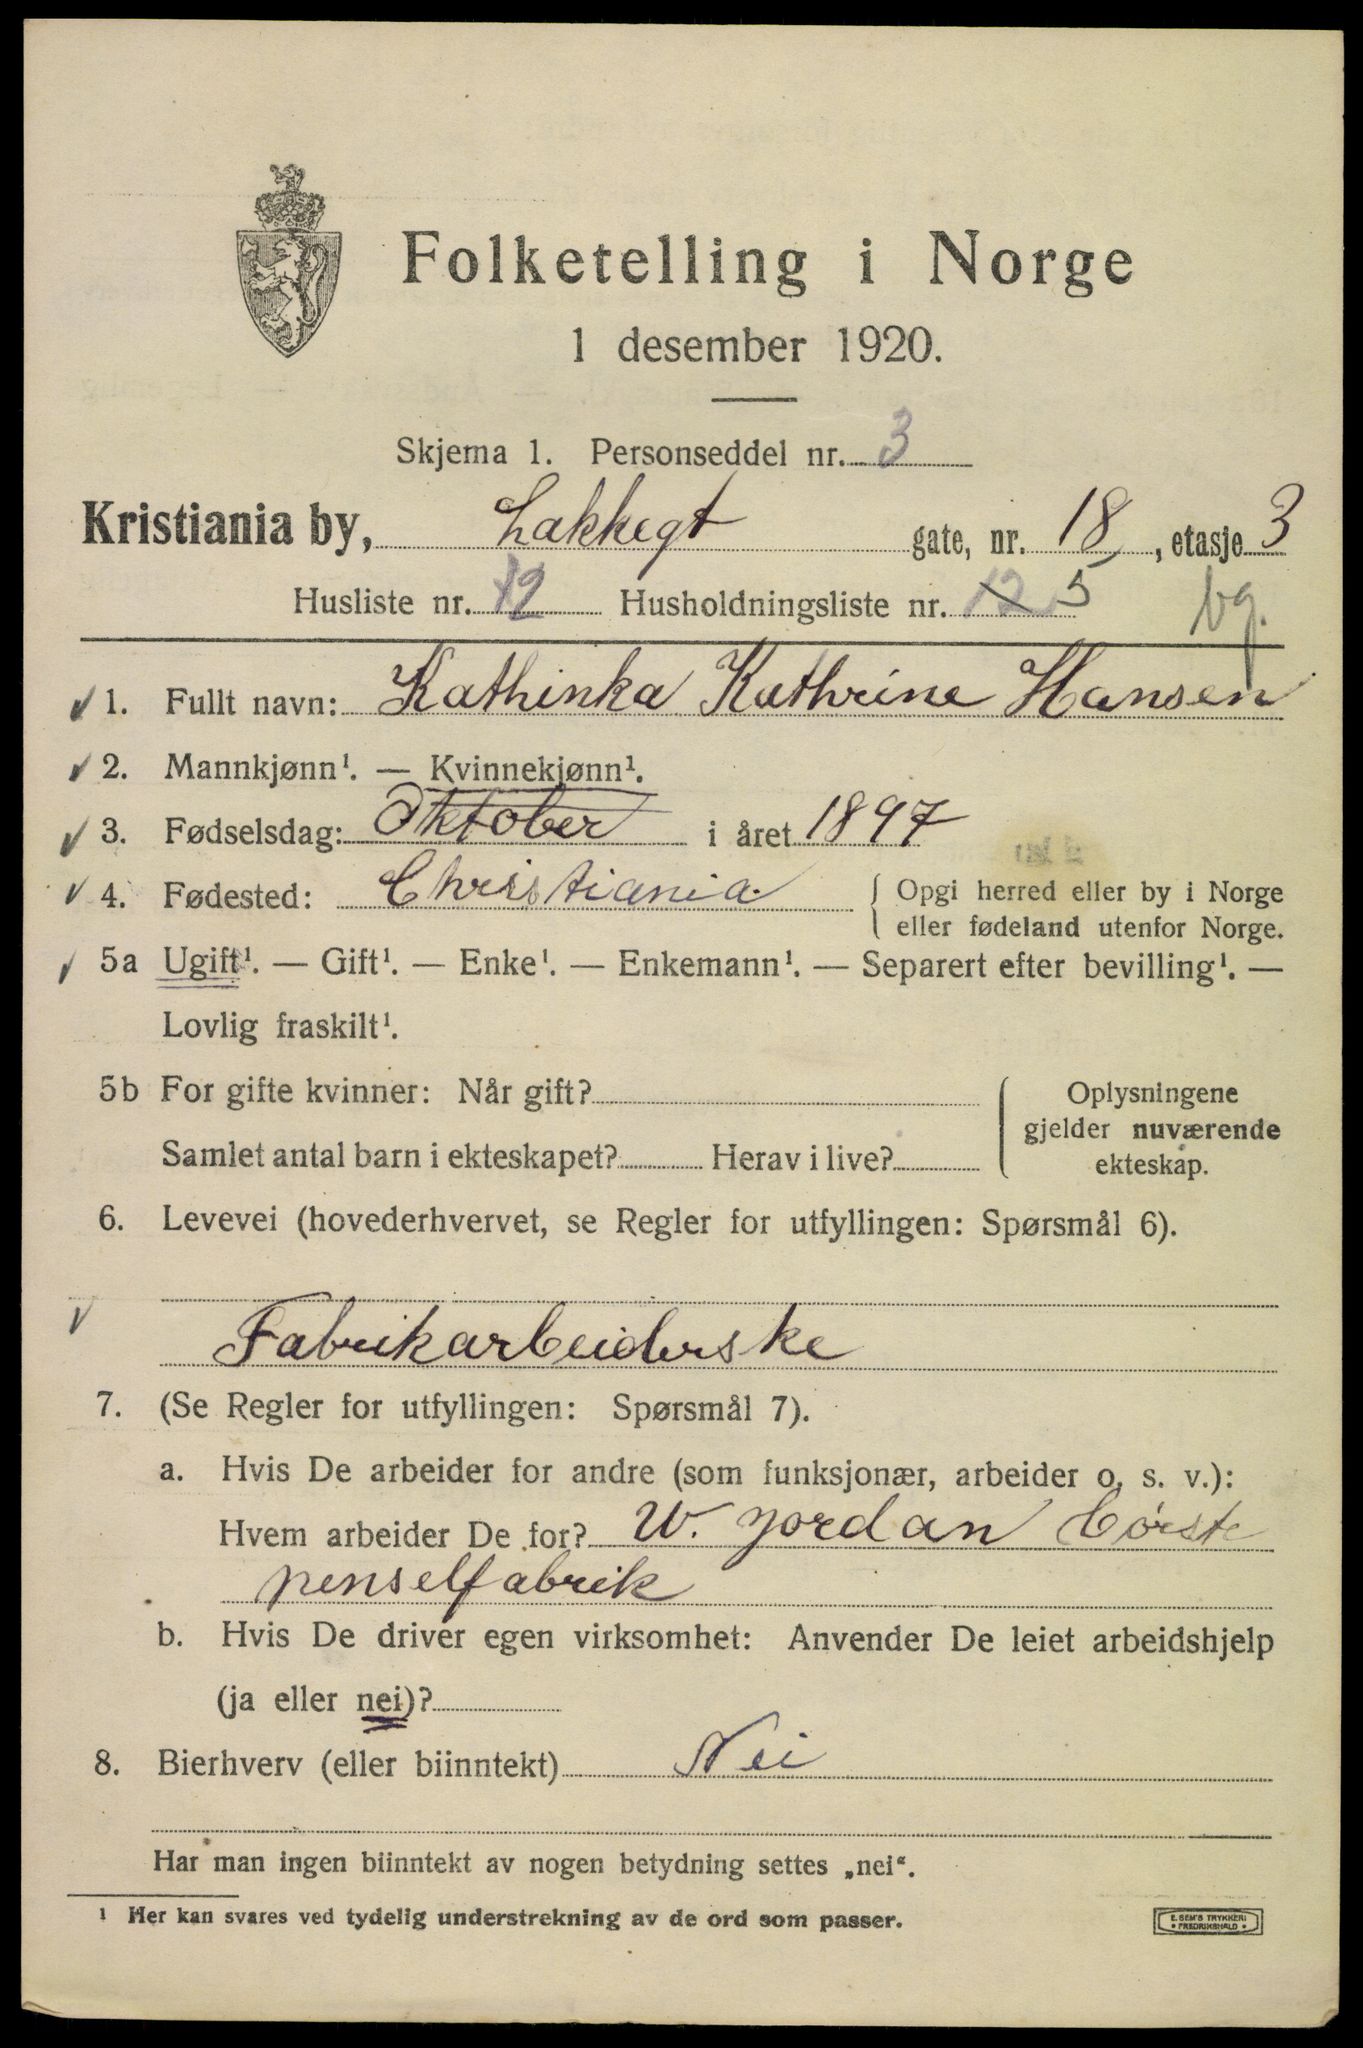 Folketelling i Norge
1 desember 1920.
Skjema 1. Personseddel nr. 3
Kristiania by, Lakkegt gate, nr. 18, etasje 3
Husliste nr. 12 Husholdningsliste nr. 12 5
bg.
1. Fullt navn: Kathinka Kathrine Hansen
2. Mannkjønn¹. — Kvinnekjønn¹.
3. Fødselsdag: Oktober i året 1897
4. Fødested: Christiania { Opgi herred eller by i Norge
eller fødeland utenfor Norge.
5a Ugift¹. — Gift¹. — Enke¹. — Enkemann¹. — Separert efter bevilling¹. —
Lovlig fraskilt¹.
5b For gifte kvinner: Når gift? { Oplysningene
gjelder nuværende
Samlet antal barn i ekteskapet? Herav i live? ekteskap.
6. Levevei (hovederhvervet, se Regler for utfyllingen: Spørsmål 6).
Fabrikarbeiderske
7. (Se Regler for utfyllingen: Spørsmål 7).
a. Hvis De arbeider for andre (som funksjonær, arbeider o. s. v.):
Hvem arbeider De for? W. Jordan Børste
penselfabrik
b. Hvis De driver egen virksomhet: Anvender De leiet arbeidshjelp
(ja eller nei)?
8. Bierhverv (eller biinntekt) Nei
Har man ingen biinntekt av nogen betydning settes „nei“.
¹ Her kan svares ved tydelig understrekning av de ord som passer.
E. SEM'S TRYKKERI
• FREDRIKSHALD •